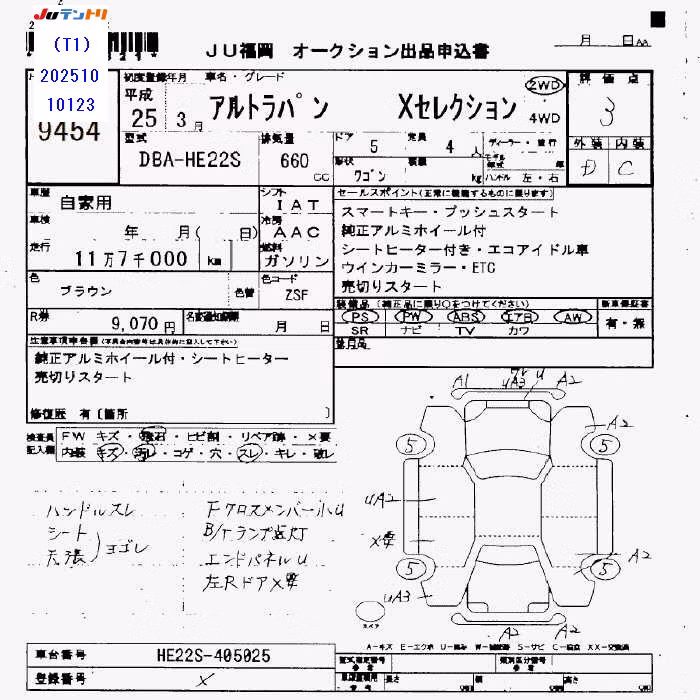 JUテントリ
(T1)
202510
10123
9454
JU福岡 オークション出品申込書
月 日
初度登録年月 車名・グレード
平成
25 3月
アルトラパン Xセレクション
2WD
4WD
評価点
3
外装 内装
D C
型式
DBA-HE22S
排気量
660
cc
ドア 5
定員 4人
形状 ワゴン
積載 kg
ハンドル 左・右
車歴
自家用
シフト
IAT
車検
年 月( 日)
冷房
AAC
走行
11万7千000 km
燃料
ガソリン
色
ブラウン
色替
色コード
ZSF
R券
9,070円
名変通知期限
月 日
セールスポイント(正常に機能するものに限ります)
スマートキー・プッシュスタート
純正アルミホイール付
シートヒーター付き・エコアイドル車
ウインカーミラー・ETC
売切りスタート
装備品(純正品に限り○をつけてください)
PS PW ABS エアB AW
SR ナビ TV カワ
新車保証書
有・無
注意事項申告欄
純正アルミホイール付・シートヒーター
売切りスタート
修復歴 有〔箇所 〕
検査員
記入欄
FW キズ・飛石・ヒビ割・リペア跡・×要
内装 キズ・汚レ・コゲ・穴・スレ・キレ・破レ
ハンドルスレ
シート
天張
ヨゴレ
F クロスメンバー小U
B/Tランプ点灯
エンドパネルU
左Rドア×要
A1 UA3 U A2
A2
5 5
UA2
×要
5 5
A2
UA3
A2 A2
スペア
A-キズ E-エクボ U-凹み W-補修跡 S-サビ C-腐食 XX-交換済
車台番号
HE22S-405025
登録番号
×
型式指定番号
類別区分番号
長さ 幅 高さ